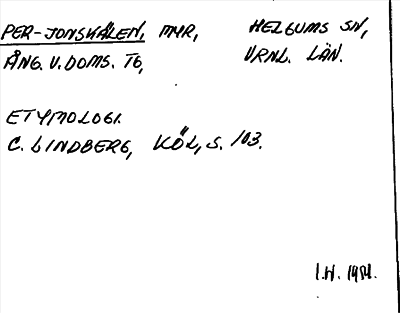 PER-JONSKÄLEN, MYR, HELGUMS SN,
ÅNG. V. DOMS. TG, VRNL. LÄN.
ETYMOLOGI.
C. LINDBERG, KÖL, S. 103.
I.W. 1984.